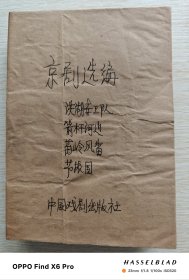 京剧选编
洪湖赤卫队
箭杆河边
苗岭风雷
节振国
中国戏剧出版社
OPPO Find X6 Pro
HASSELBLAD